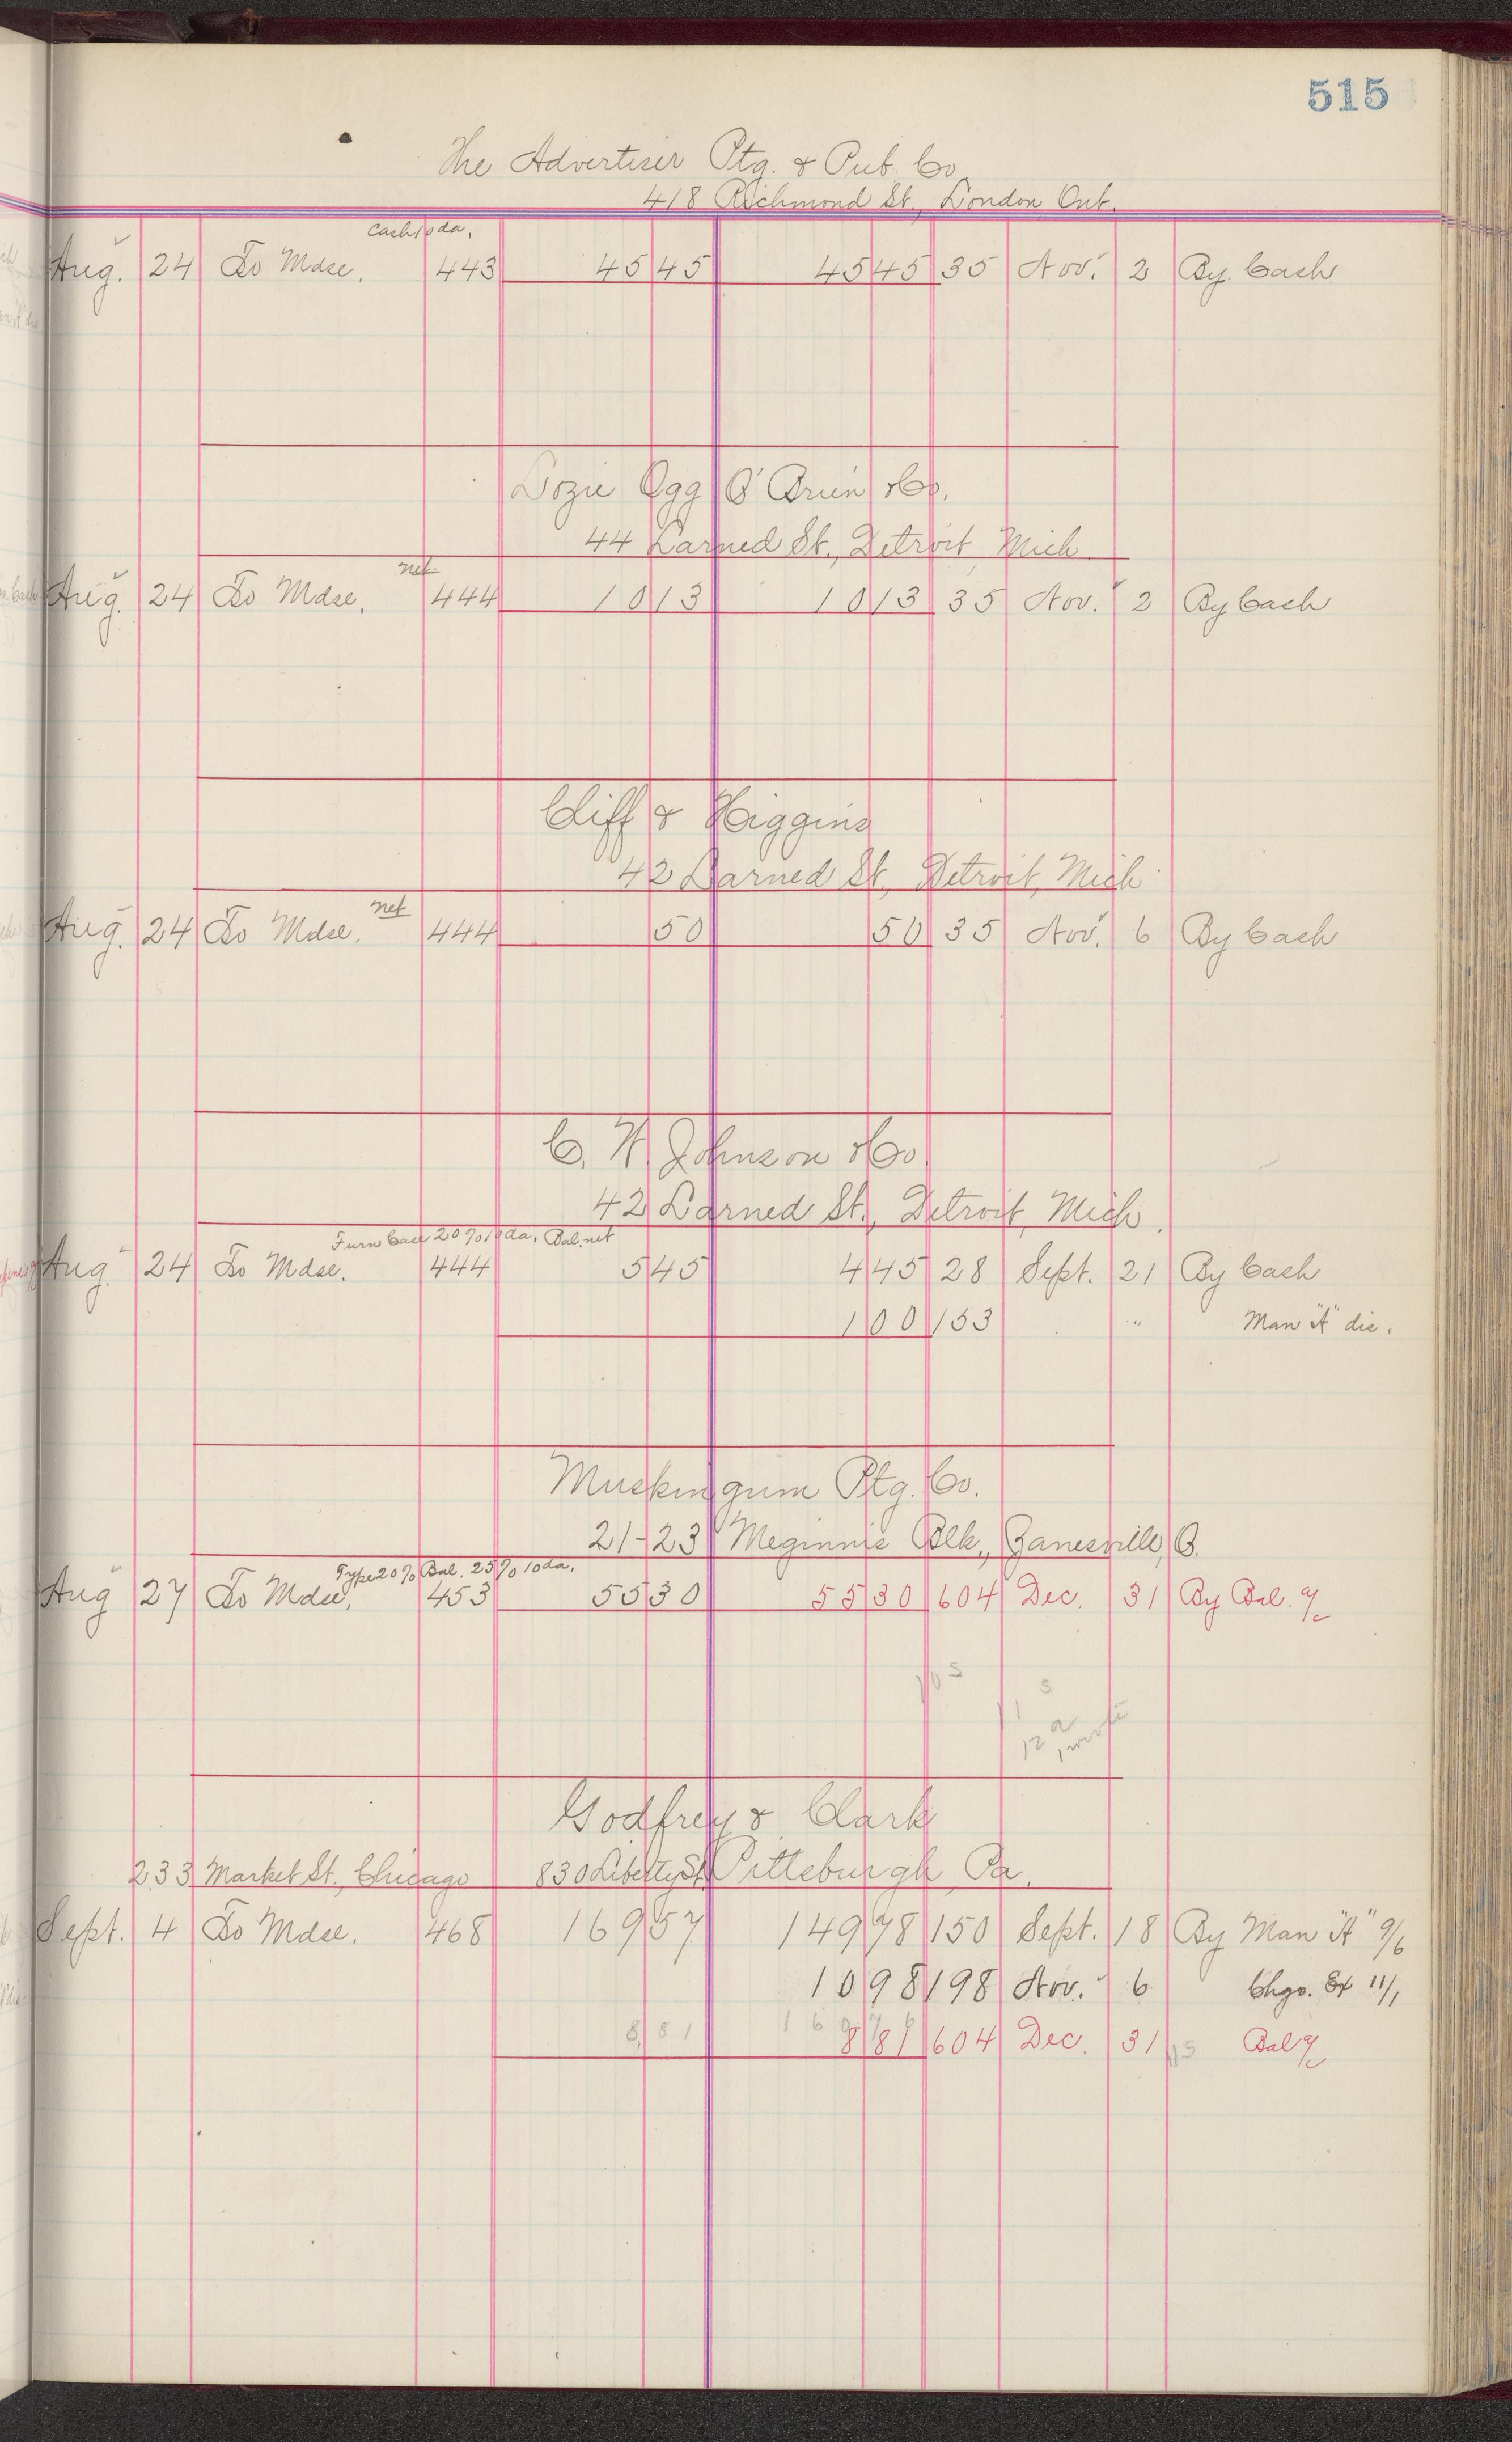 515
The Advertiser Ptg. & Pub. Co
418 Richmond St., London Ont.
cash 10 da.
Aug. 24 To Mdse. 443 45 45 45 45 35 Nov. 2 By Cash
Dozie Ogg O'Brien & Co.
44 Larned St., Detroit Mich
net
Aug. 24 To Mdse. 444 10 13 10 13 35 Nov. 2 By Cash
Cliff & Higgins
42 Larned St., Detroit, Mich
net
Aug. 24 To Mdse. 444 50 50 35 Nov. 6 By Cash
C. H. Johnson & Co.
42 Larned St., Detroit, Mich.
Furn Case 20% 10 da. Bal. net
Aug. 24 To Mdse. 444 5 45 4 45 28 Sept. 21 By Cash
1 00 153 " Man "A" die.
Muskingum Ptg. Co.
21-23 Meginnis Blk., Zanesville, O.
Type 20% Bal. 25% 10 da.
Aug 27 To Mdse. 453 55 30 55 30 604 Dec. 31 By Bal. a/c
10 5
11 5
12 2
Godfrey & Clark
233 Market St., Chicago 830 Liberty St. Pittsburgh Pa.
Sept. 4 To Mdse. 468 169 57 149 78 150 Sept. 18 By Man "A" 9/6
10 98 198 Nov. 6 Chgo. Ex 11/1
8 81 8 81 604 Dec. 31 Bal a/c